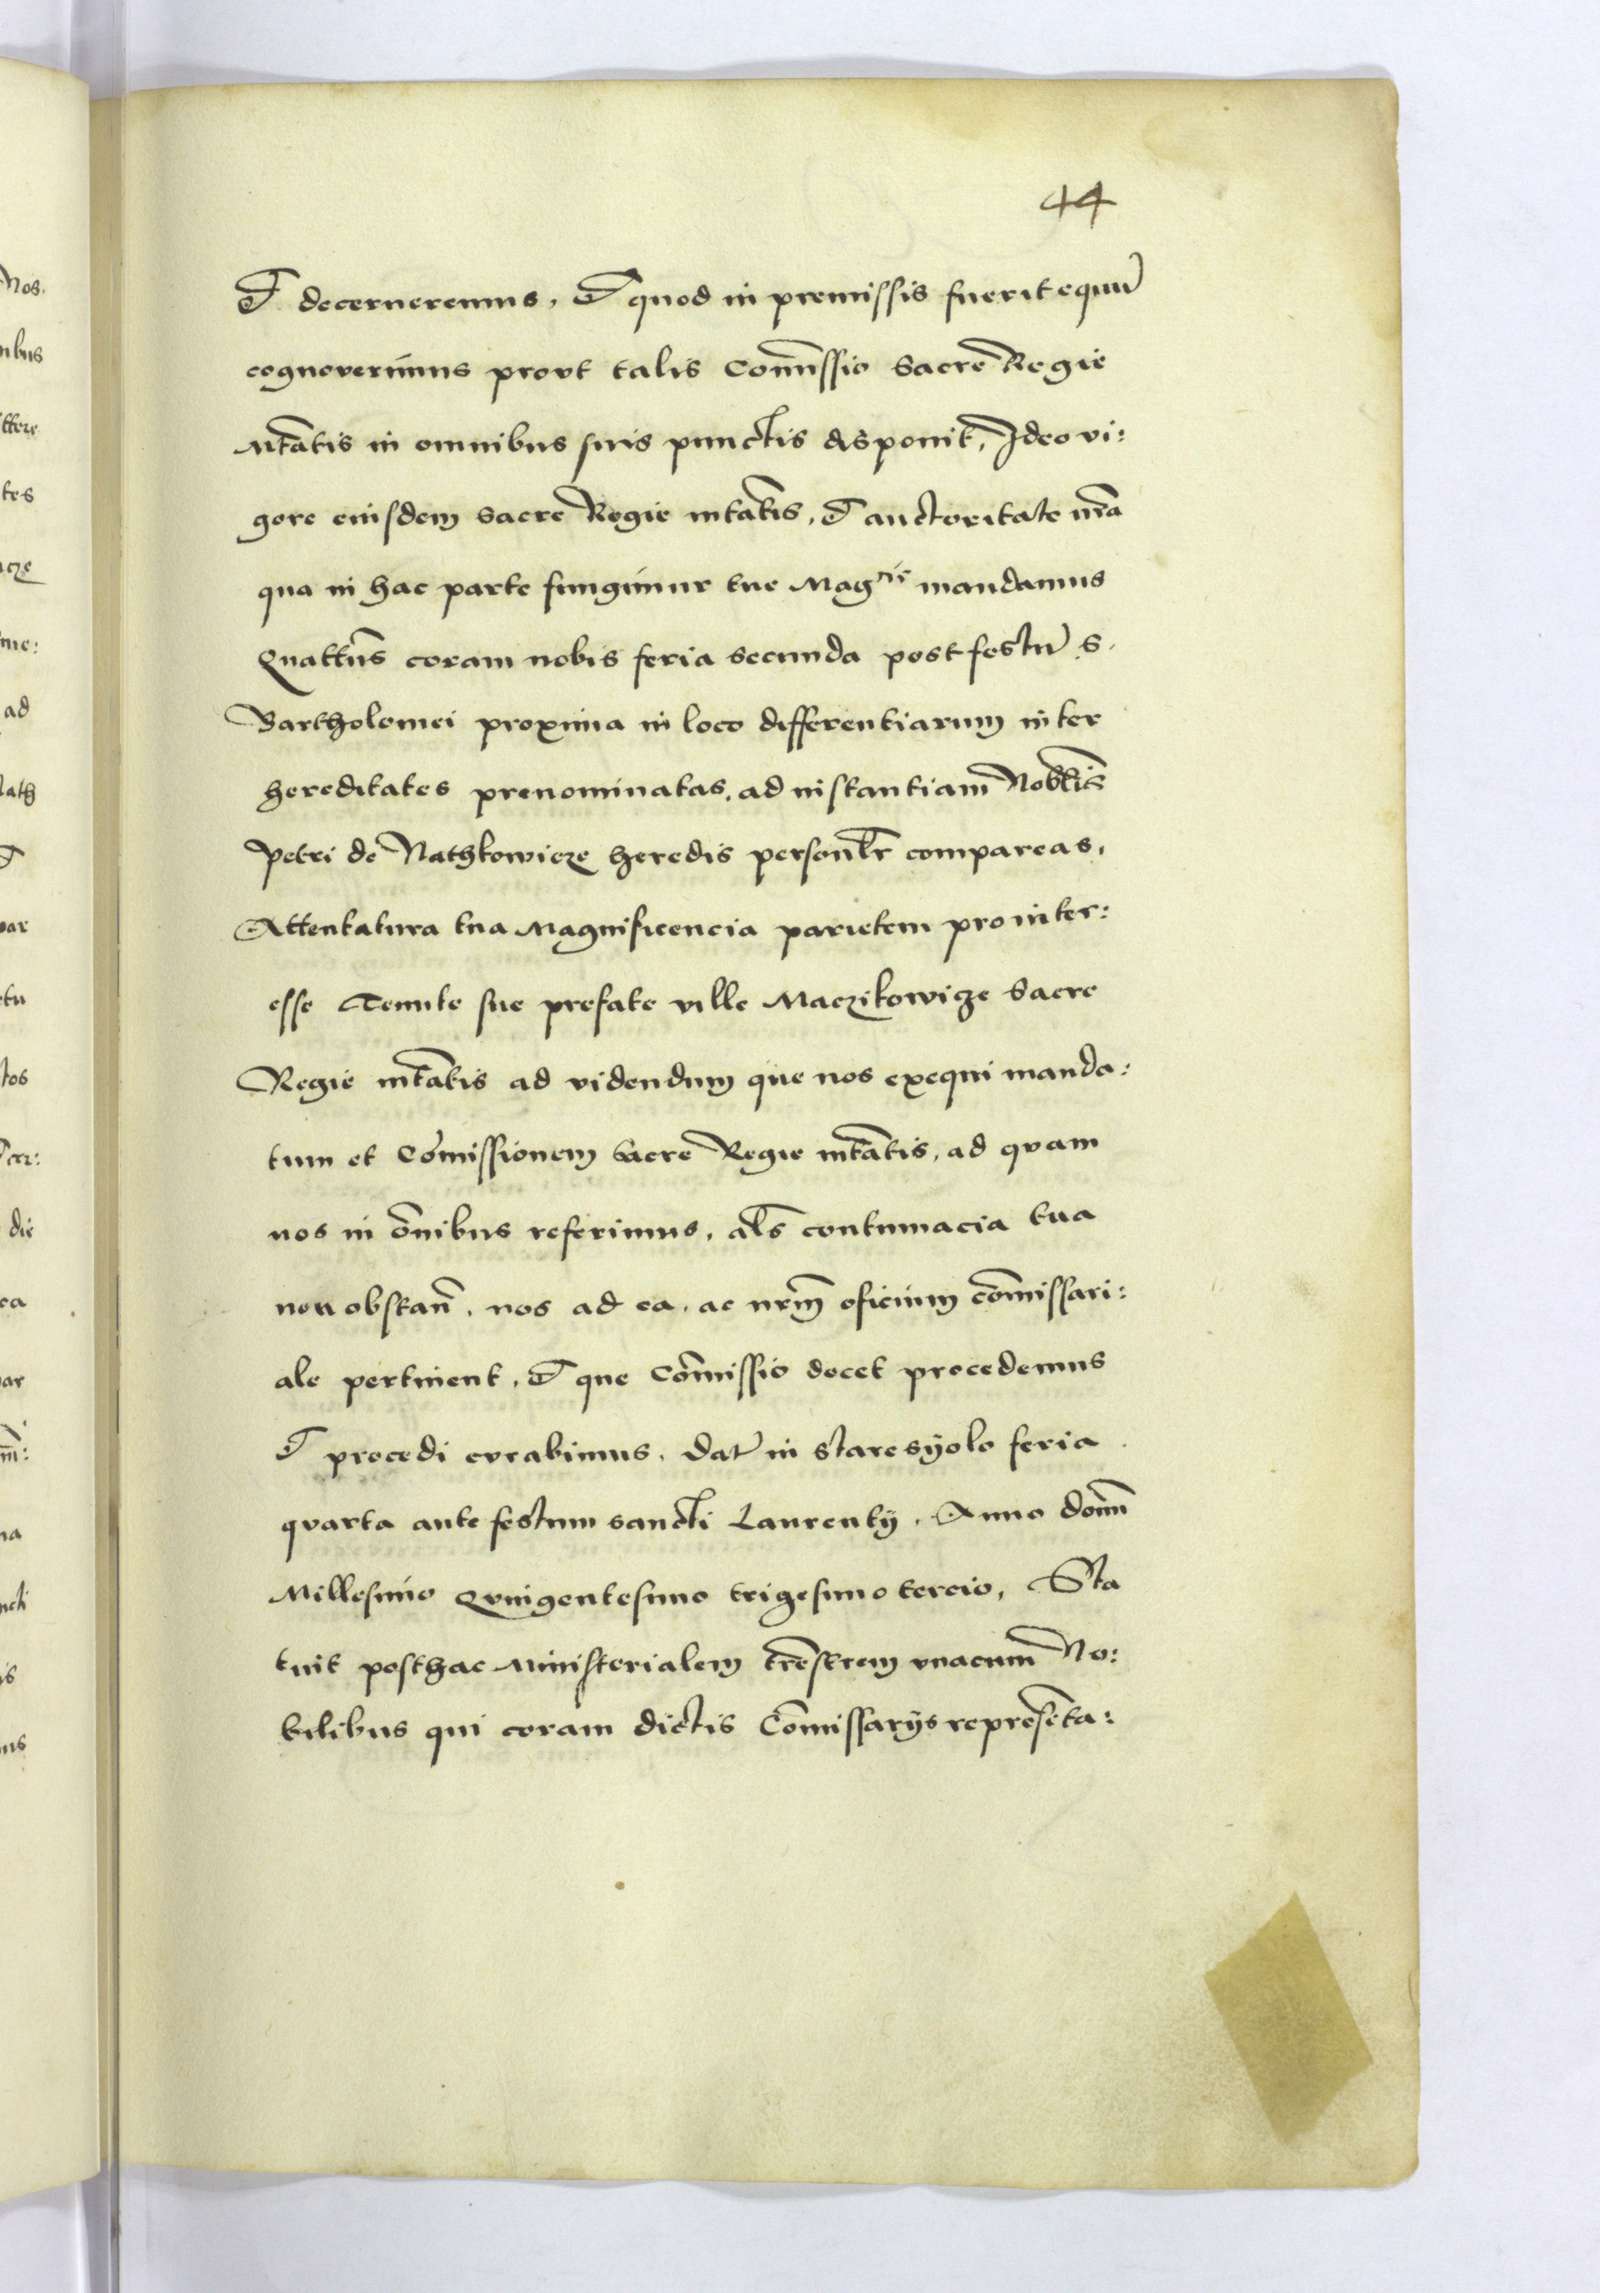 44
Et decerneremus, Et quod in premissis fuerit equũ
cognoverimus provt talis Com̃issio Sacre Regie
Mtãtis in omnibus suis punctis disponit, Ideo vi:
gore eiusdem Sacre Regie mtãtis, Et auctoritate nr̃a
qua in hac parte fungimur tue Mag^cie mandamus
Quatt̃us coram nobis feria secunda post festũ S.
Bartholomei proxima in loco differentiarum inter
hereditates prenominatas, ad instantiam Nobĩlis
Petri de Nathkowicze heredis personl̃r compareas,
Attentatura tua Magnificencia parietem pro inter:
esse Tenute sue prefate ville Maczikowicze Sacre
Regie mtãtis ad videndum que nos exequi manda:
tum et Com̃issionem Sacre Regie mtãtis, ad qvam
nos in om̃ibus referimus, al̃s contumacia tua
non obstañ, nos ad ea, ac nr̃m oficium com̃issari:
ale pertinent, Et que Com̃issio docet procedemus
Et procedi cvrabimus, Dat̃ in Staresyolo feria
qvarta ante festum sancti Laurentÿ, Anno Dom̃
Millesimo Qvingentesimo trigesimo tercio, Sta
tuit posthac Ministerialem tr̃estrem vnacum No:
bilibus qui coram dictis Com̃issarÿs represẽta: